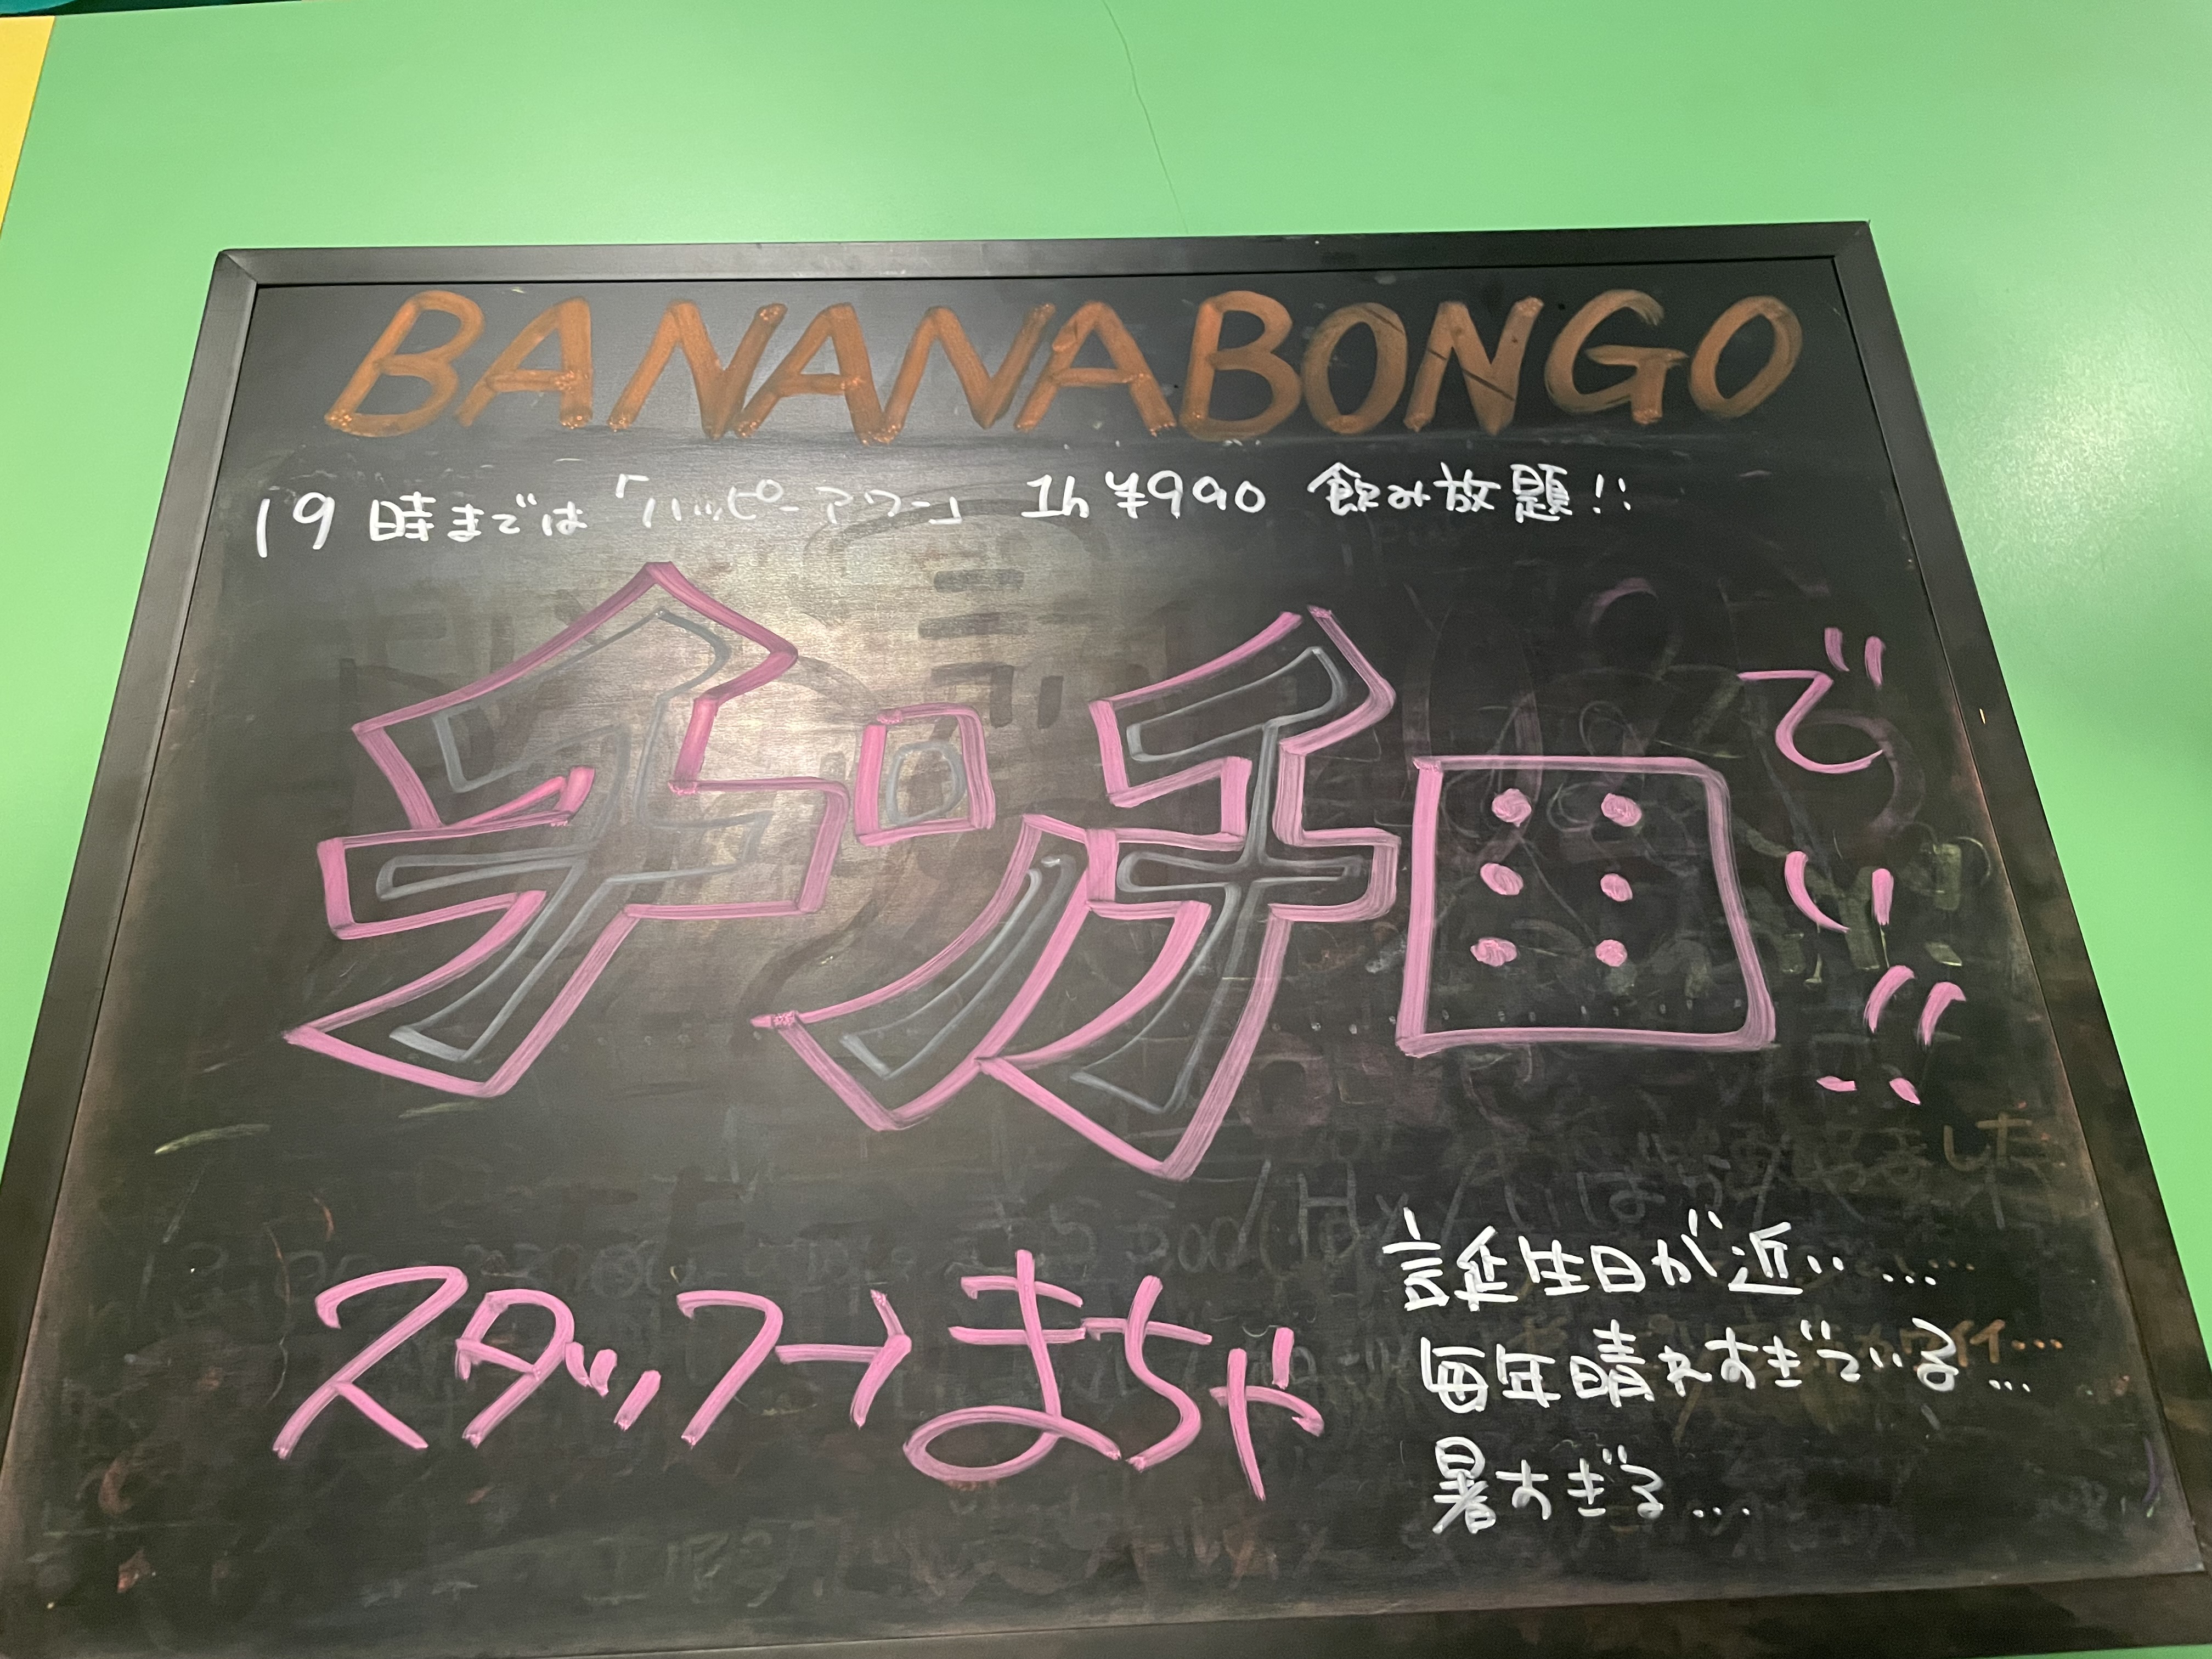 BANANABONGO
19時までは「ハッピーアワー」 1h ¥990 飲み放題!!
チンチロでい!!
スタッフ→まちゃ
誕生日が近い…
毎年晴れすぎている…
暑すぎる…